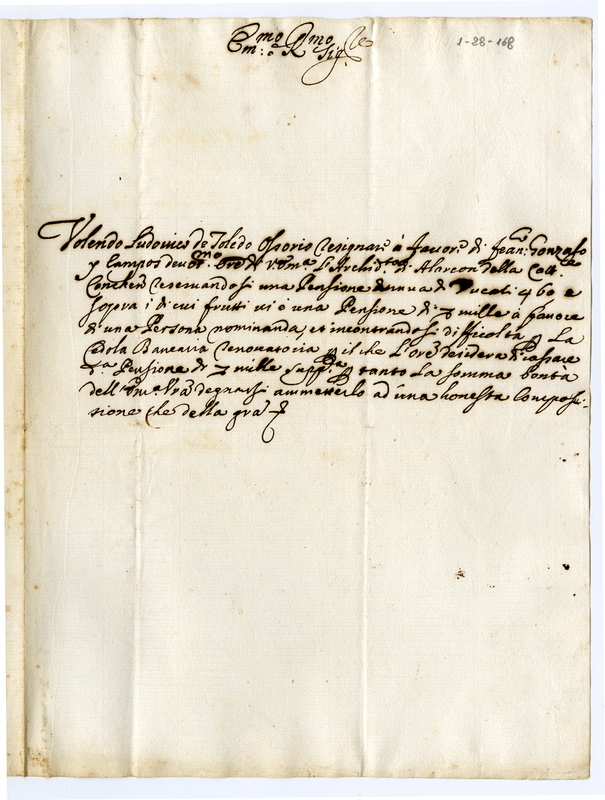 Em.mo R.mo Sig.re
1-28-168
Volendo Ludovico de Toledo Ossorio resignare à favore di Jean Gonzalo
y Campos devot.mo Ore di V. Em.a L'Archid.to di Alarcon della Catt.le
Conchen reservandosi una Pensione annua di Ducati 460 e
sopra i di cui frutti vi è una Pensione di mille à favore
di una Persona nominanda, et incontrandosi difficoltà La
Cedola Bancaria renovatoria il che L'Ore desidera di cassare
Pensione di mille supp.ca tanto La somma bontà
dell' Em.a Vra degnarsi ammetterlo ad una honesta Composi-
sione che della gra